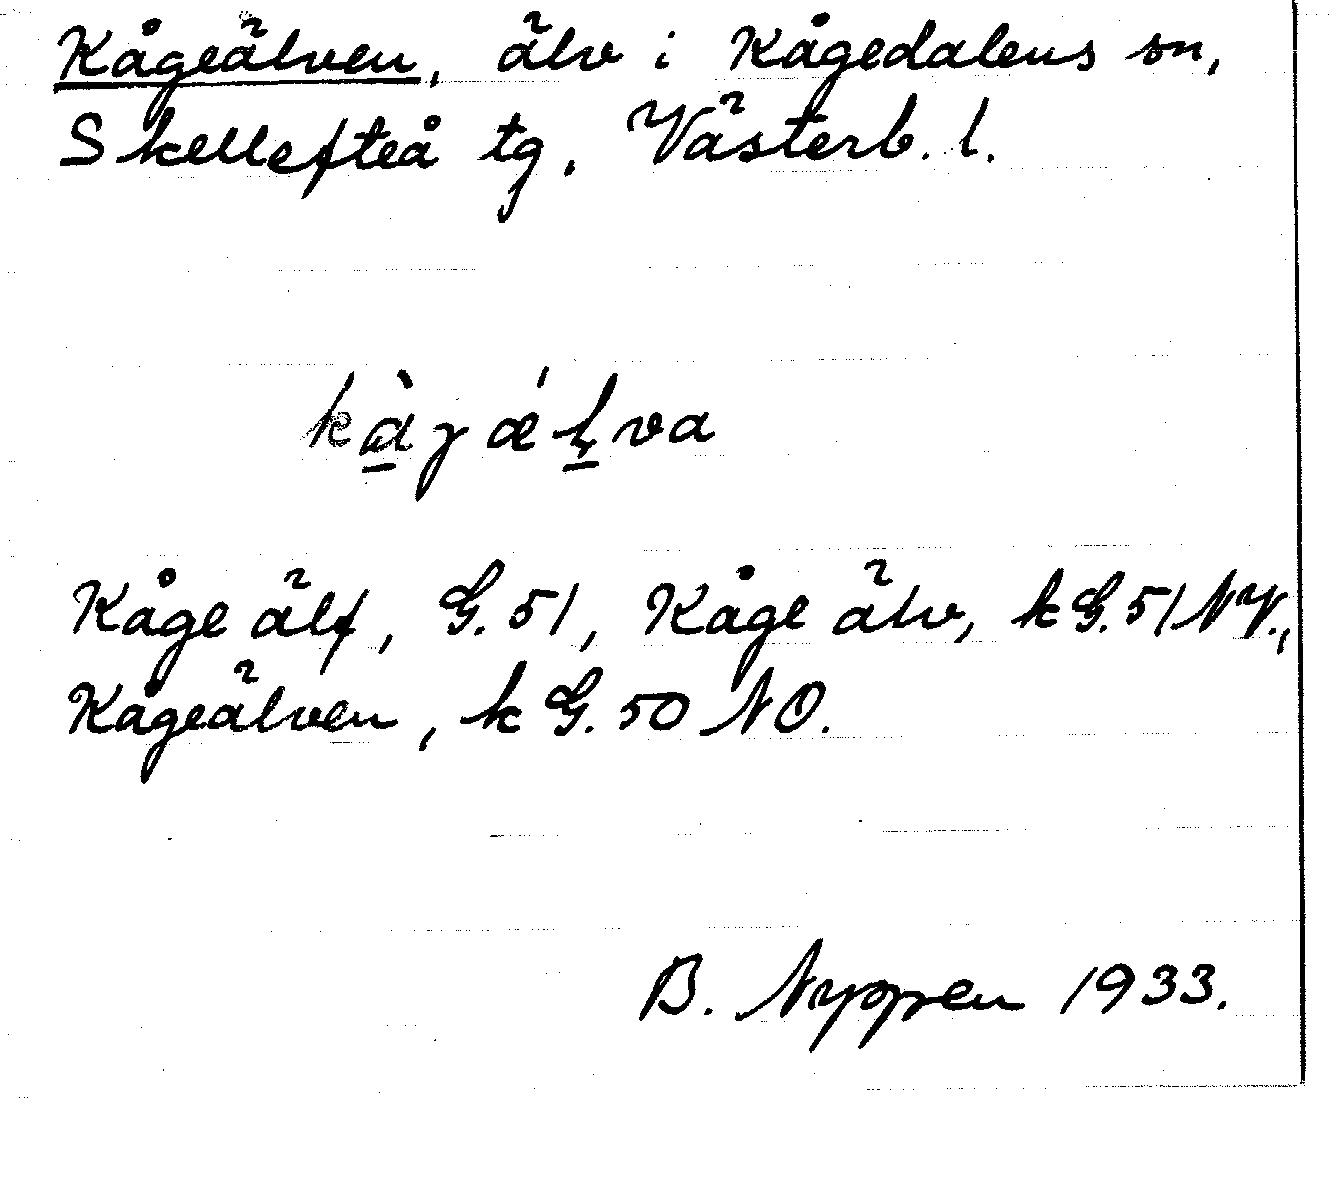 Kågeälven, älv i Kågedalens sn,
Skellefteå tg. Västerb. l.
kàγǽłva
Kåge älf, G. 51, Kåge älv, kG. 51 NV.,
Kågeälven, kG. 50 NO.
B. Nyppen 1933.